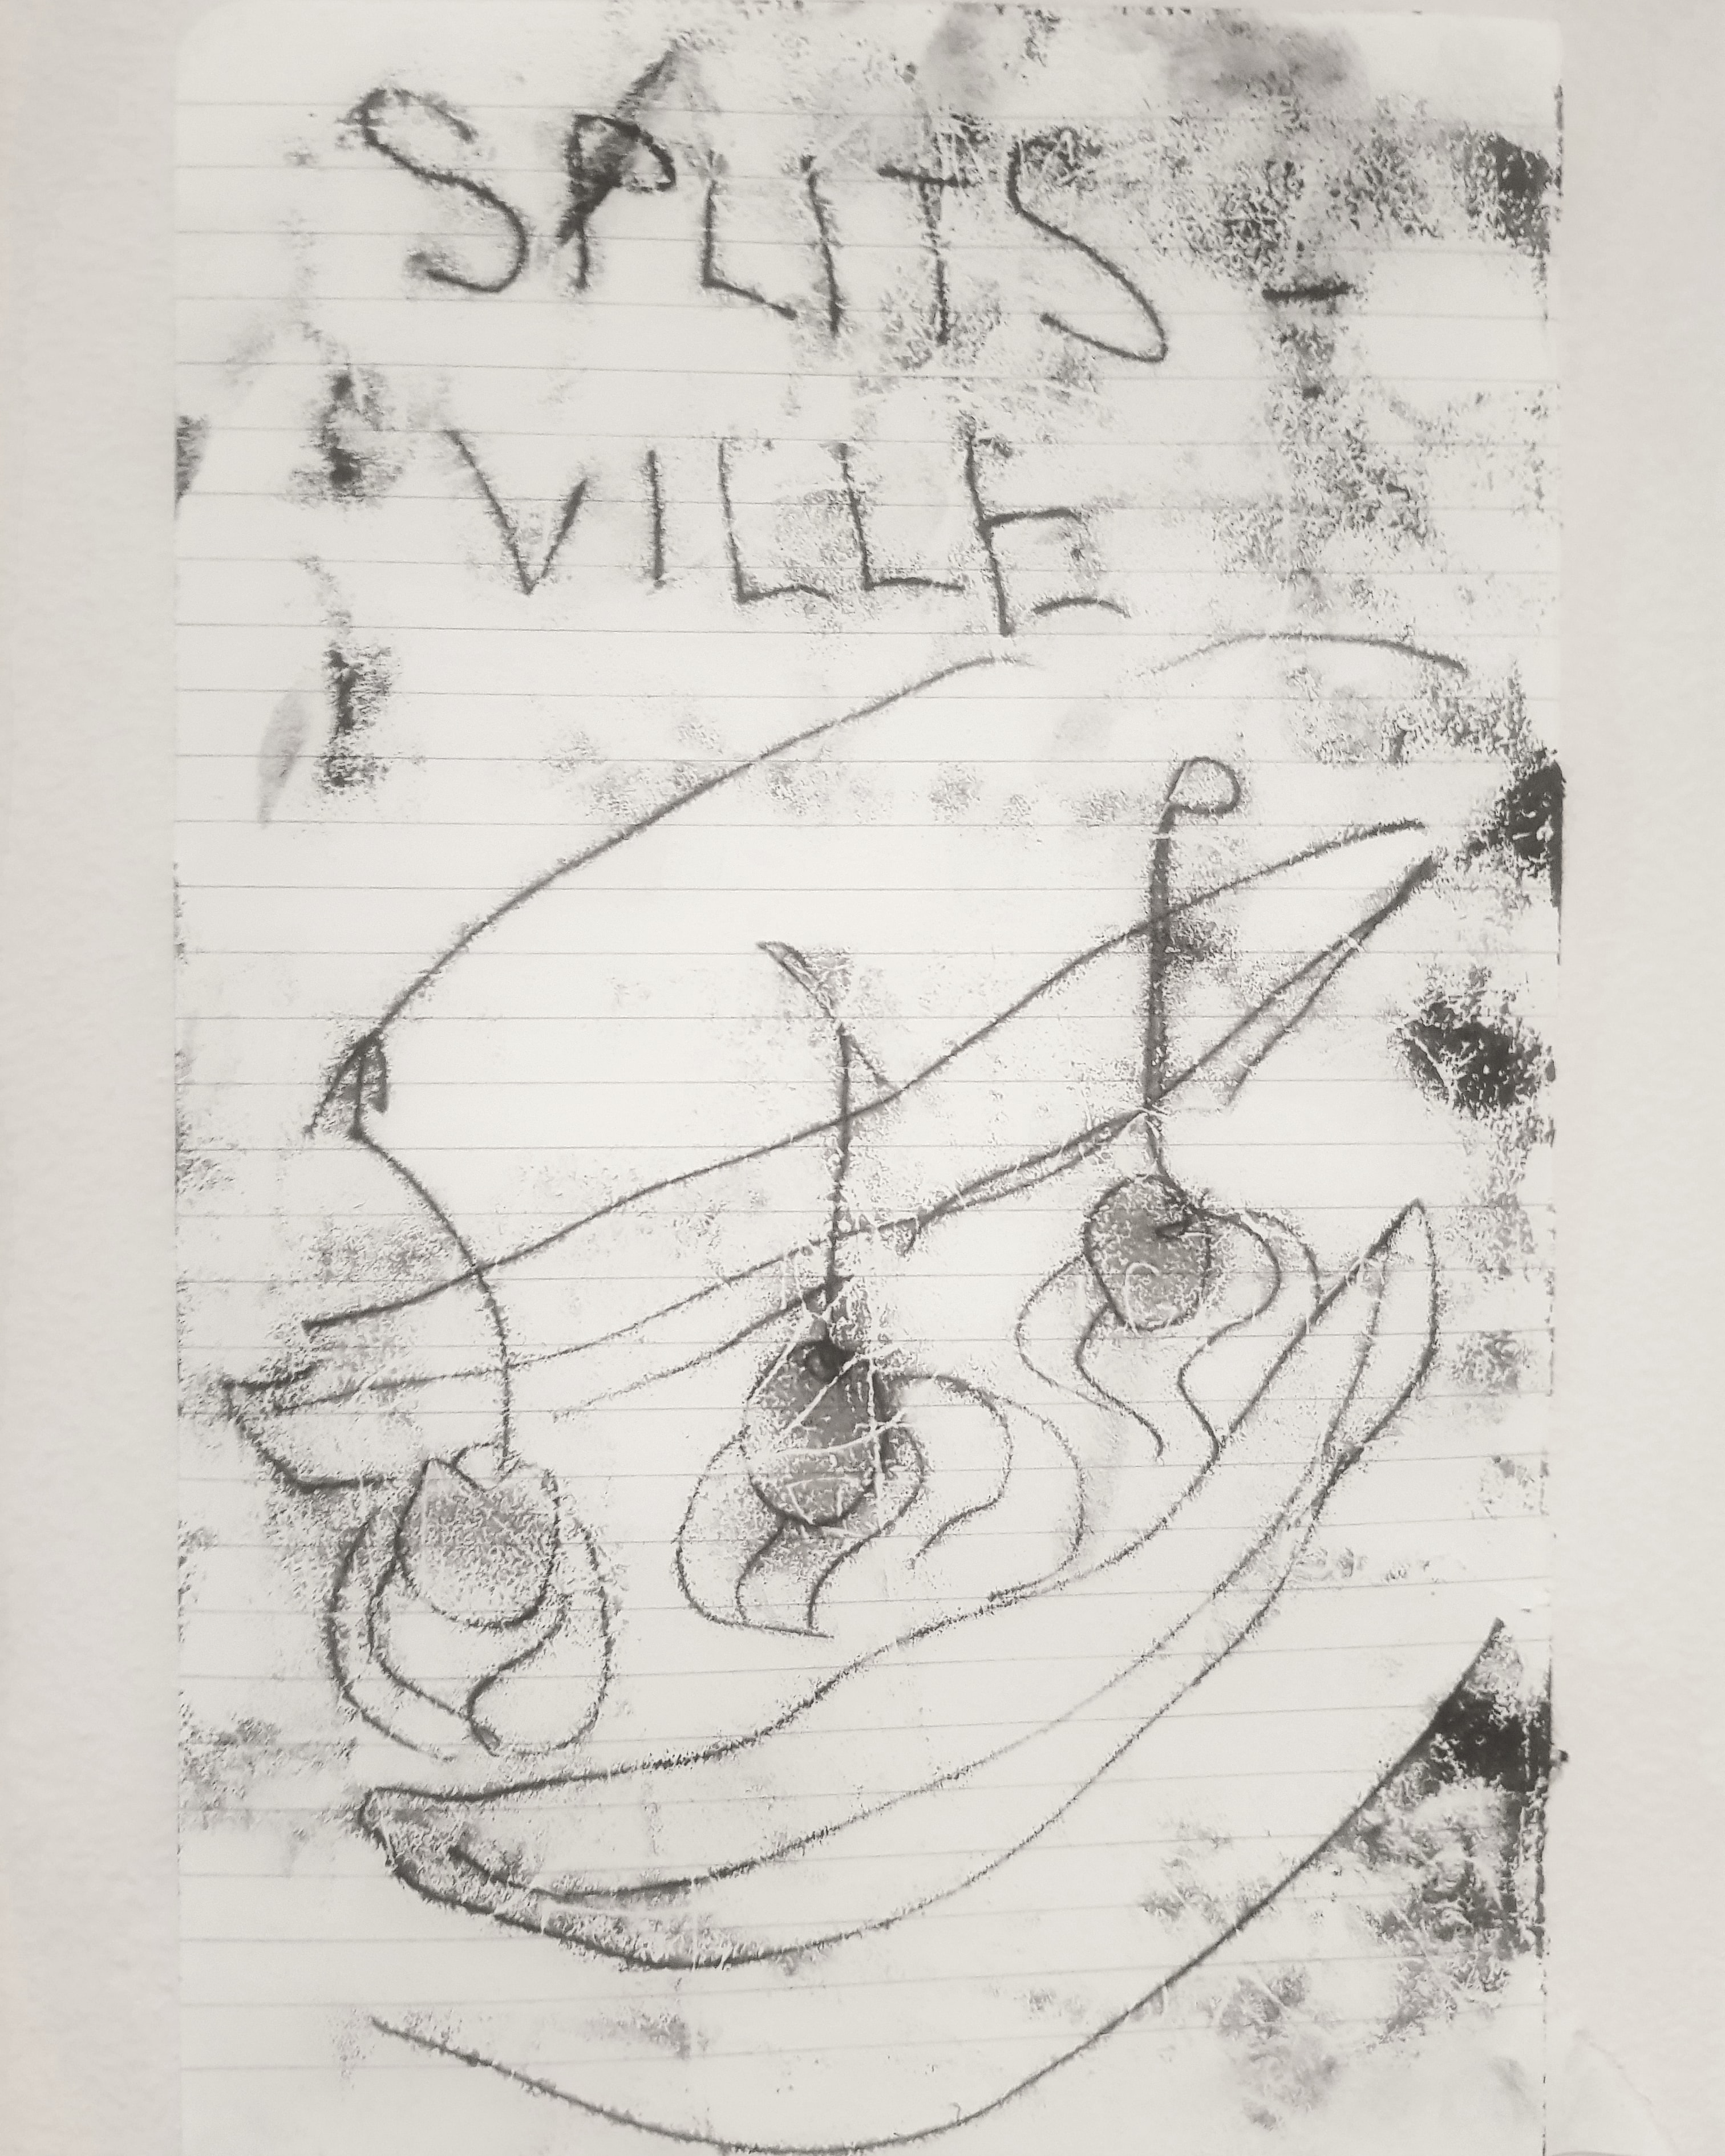 SPLITS
VILLE